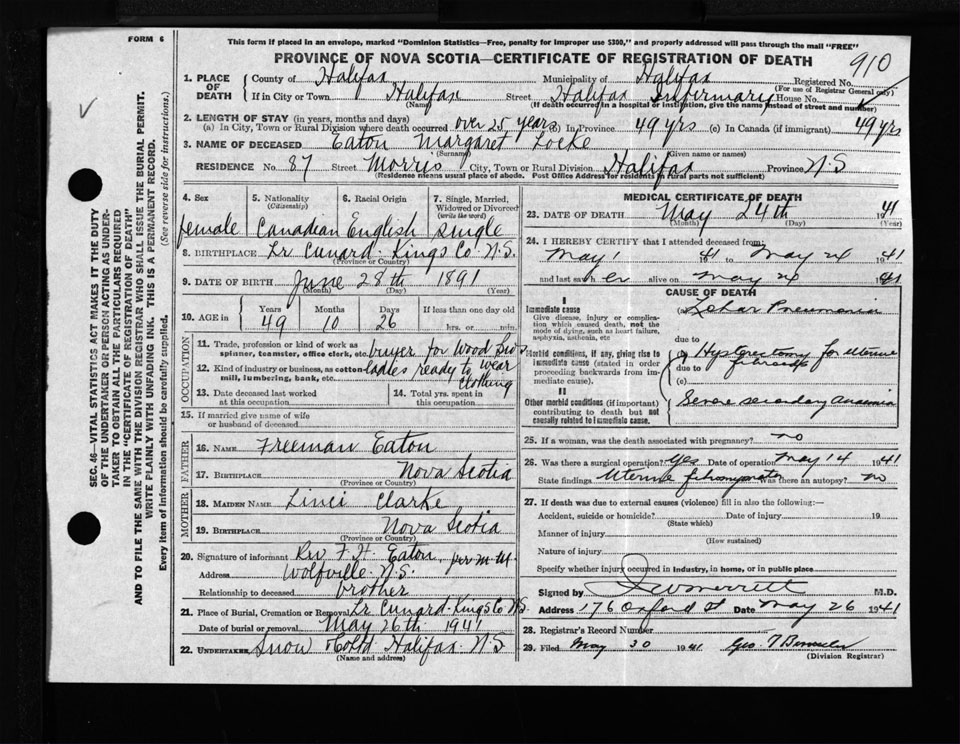 FORM 6
This form if placed in an envelope, marked "Dominion Statistics—Free, penalty for improper use $300," and properly addressed will pass through the mail "FREE"
PROVINCE OF NOVA SCOTIA—CERTIFICATE OF REGISTRATION OF DEATH
910
SEC. 46—VITAL STATISTICS ACT MAKES IT THE DUTY
OF THE UNDERTAKER OR PERSON ACTING AS UNDER-
TAKER TO OBTAIN ALL THE PARTICULARS REQUIRED
IN THE "CERTIFICATE OF REGISTRATION OF DEATH"
AND TO FILE THE SAME WITH THE DIVISION REGISTRAR WHO SHALL ISSUE THE BURIAL PERMIT.
WRITE PLAINLY WITH UNFADING INK. THIS IS A PERMANENT RECORD.
Every item of Information should be carefully supplied. (See reverse side for instructions.)
1. PLACE OF DEATH County of Halifax Municipality of Halifax Registered No.
(For use of Registrar General only)
If in City or Town Halifax Street Halifax Infirmary House No.
(Name) (If death occurred in a hospital or institution, give the name instead of street and number)
2. LENGTH OF STAY (in years, months and days)
(a) In City, Town or Rural Division where death occurred over 25 years (b) In Province 49 yrs (c) In Canada (if immigrant) 49 yrs
3. NAME OF DECEASED Eaton Margaret Locke
(Surname) (Given name or names)
RESIDENCE No. 87 Street Morris City, Town or Rural Division Halifax Province N.S
(Residence means usual place of abode. Post Office Address for residents of rural parts not sufficient)
4. Sex 5. Nationality (Citizenship) 6. Racial Origin 7. Single, Married, Widowed or Divorced (write the word)
female Canadian English single
8. BIRTHPLACE Lr Cunard. Kings Co N.S.
(Province or Country)
9. DATE OF BIRTH June 28th 1891
(Month) (Day) (Year)
10. AGE in Years Months Days If less than one day old
49 10 26 hrs. or min.
OCCUPATION
11. Trade, profession or kind of work as spinner, teamster, office clerk, etc. buyer for Wood Bros
12. Kind of industry or business, as cotton-mill, lumbering, bank, etc. ladies ready to wear
clothing
13. Date deceased last worked at this occupation 14. Total yrs. spent in this occupation
15. If married give name of wife or husband of deceased
FATHER
16. NAME Freeman Eaton
17. BIRTHPLACE Nova Scotia
(Province or Country)
MOTHER
18. MAIDEN NAME Linci Clarke
19. BIRTHPLACE Nova Scotia
(Province or Country)
20. Signature of informant Rev F. H. Eaton, per M.M.
Address Wolfville. N.S.
Relationship to deceased brother
21. Place of Burial, Cremation or Removal Lr Cunard. Kings Co N.S.
Date of burial or removal May 26th 1941
22. UNDERTAKER Snow & Co Ltd Halifax N.S
(Name and address)
MEDICAL CERTIFICATE OF DEATH
23. DATE OF DEATH May 24th 1941
(Month) (Day) (Year)
24. I HEREBY CERTIFY that I attended deceased from:
May 1 1941 to May 24 1941
and last saw her alive on May 24 1941
CAUSE OF DEATH
I
Immediate cause (a) Lobar Pneumonia
Give disease, injury or complication which caused death, not the mode of dying, such as heart failure, asphyxia, asthenia, etc
due to
Morbid conditions, if any, giving rise to immediate cause (stated in order proceeding backwards from immediate cause).
(b) Hysterectomy for Uterine
fibroids
due to
(c)
II
Other morbid conditions (if important) contributing to death but not causally related to immediate cause.
Severe secondary anaemia
25. If a woman, was the death associated with pregnancy? no
26. Was there a surgical operation? yes Date of operation May 14 1941
State findings Uterine fibromyomata Was there an autopsy? no
27. If death was due to external causes (violence) fill in also the following:—
Accident, suicide or homicide? Date of injury 19
(State which)
Manner of injury
(How sustained)
Nature of injury
Specify whether injury occurred in industry, in home, or in public place
Signed by Merritt M.D.
Address 176 Oxford St Date May 26 1941
28. Registrar's Record Number
29. Filed May 30 1941 Geo. T
(Division Registrar)